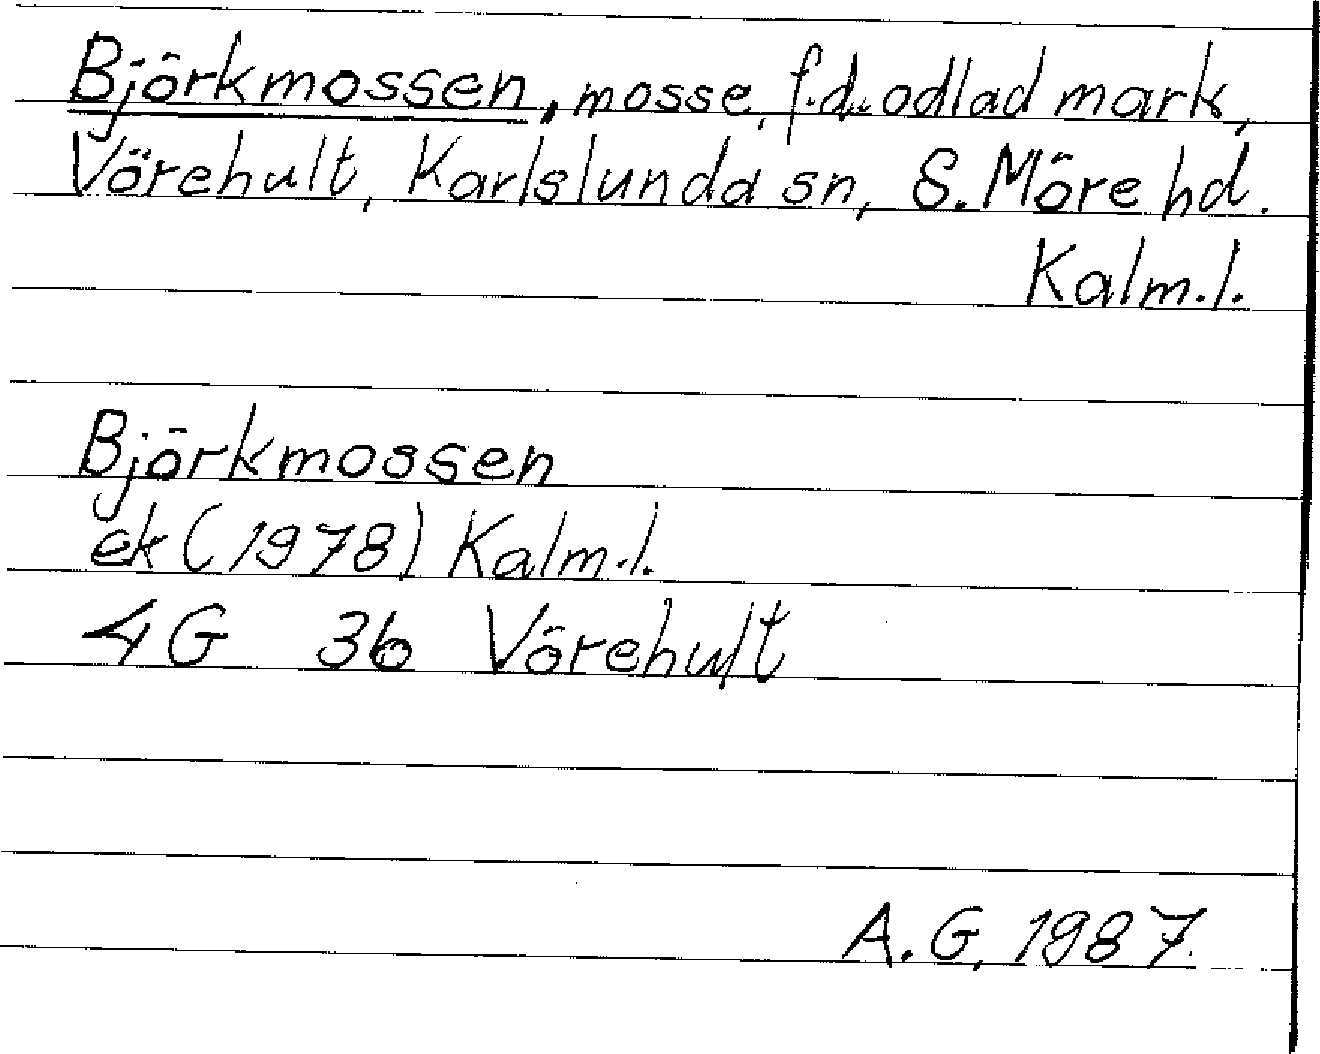 Björkmossen, mosse, f.d. odlad mark,
Vörehult, Karlslunda sn, S. Möre hd.
Kalm.l.
Björkmossen
ek (1978) Kalm.l.
4G 3b Vörehult
A.G. 1987